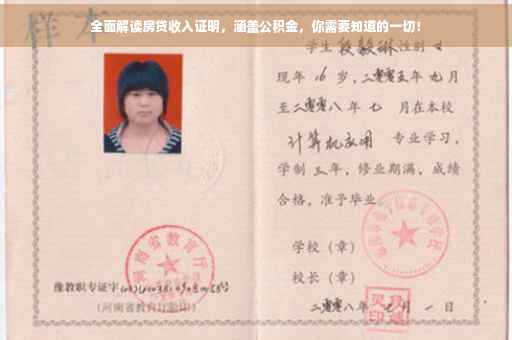 全面解读房贷收入证明，涵盖公积金，你需要知道的一切！
样本
学生段毅琳性别女
现年16岁，二零零五年九月
至二零零八年七月在本校
计算机应用 专业学习，
学制三年，修业期满，成绩
合格，准予毕业
学校（章）
校长（章）
豫教职专证字
(河南省教育厅验印)
二零零八年 月一日
河南省教育厅